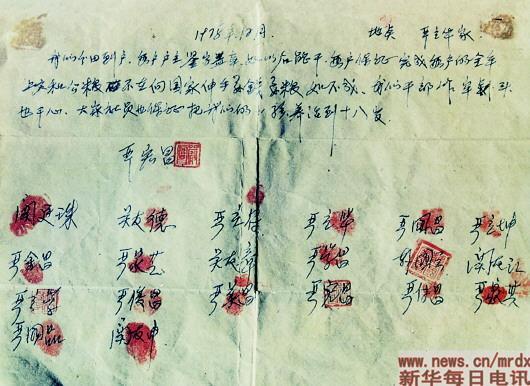 1978年12月 地点 严立华家
我们分田到户,每户户主签字盖章,如以后能干,每户保证完成每户的全年
上交和公粮 不在向国家伸手要钱要粮,如不成,我们干部作牢刹头
也干心,大家社员也保证把我们的小孩养活到十八岁。
严宏昌
关廷珠 关友德 严立符 严立华 严国昌 严立坤
严金昌 严家芝 关友章 严学昌 韩国云 关友江
严立学 严俊昌 严美昌 严宏昌 严付昌 严家其
严国品 关友申
www.news.cn/mrdx
新华每日电讯